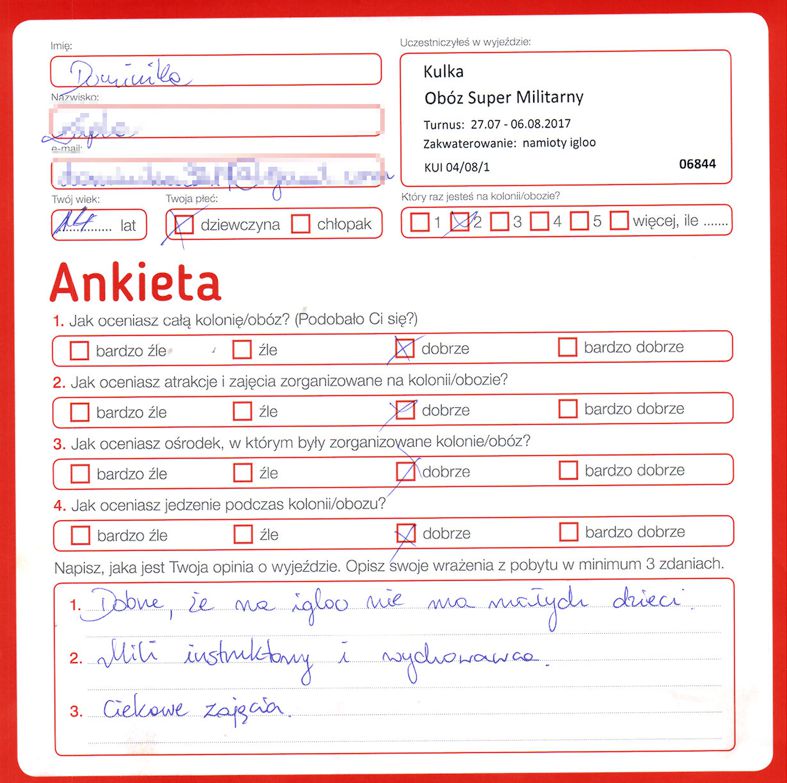 Imię:
Dominika
Nazwisko:
e-mail:
Twój wiek:
14 lat
Twoja płeć:
dziewczyna chłopak
Uczestniczyłeś w wyjeździe:
Kulka
Obóz Super Militarny
Turnus: 27.07 - 06.08.2017
Zakwaterowanie: namioty igloo
KUI 04/08/1 06844
Który raz jesteś na kolonii/obozie?
1 2 3 4 5 więcej, ile .......
Ankieta
1. Jak oceniasz całą kolonię/obóz? (Podobało Ci się?)
bardzo źle źle dobrze bardzo dobrze
2. Jak oceniasz atrakcje i zajęcia zorganizowane na kolonii/obozie?
bardzo źle źle dobrze bardzo dobrze
3. Jak oceniasz ośrodek, w którym były zorganizowane kolonie/obóz?
bardzo źle źle dobrze bardzo dobrze
4. Jak oceniasz jedzenie podczas kolonii/obozu?
bardzo źle źle dobrze bardzo dobrze
Napisz, jaka jest Twoja opinia o wyjeździe. Opisz swoje wrażenia z pobytu w minimum 3 zdaniach.
1. Dobrze, że na igloo nie ma małych dzieci.
2. Mili instruktorzy i wychowawca.
3. Ciekawe zajęcia.